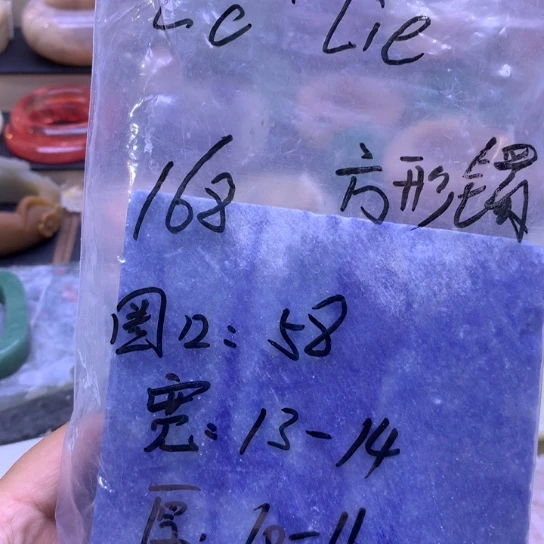 Lc Lie
168 方形镯
圈口: 58
宽: 13-14
厚: 10-11